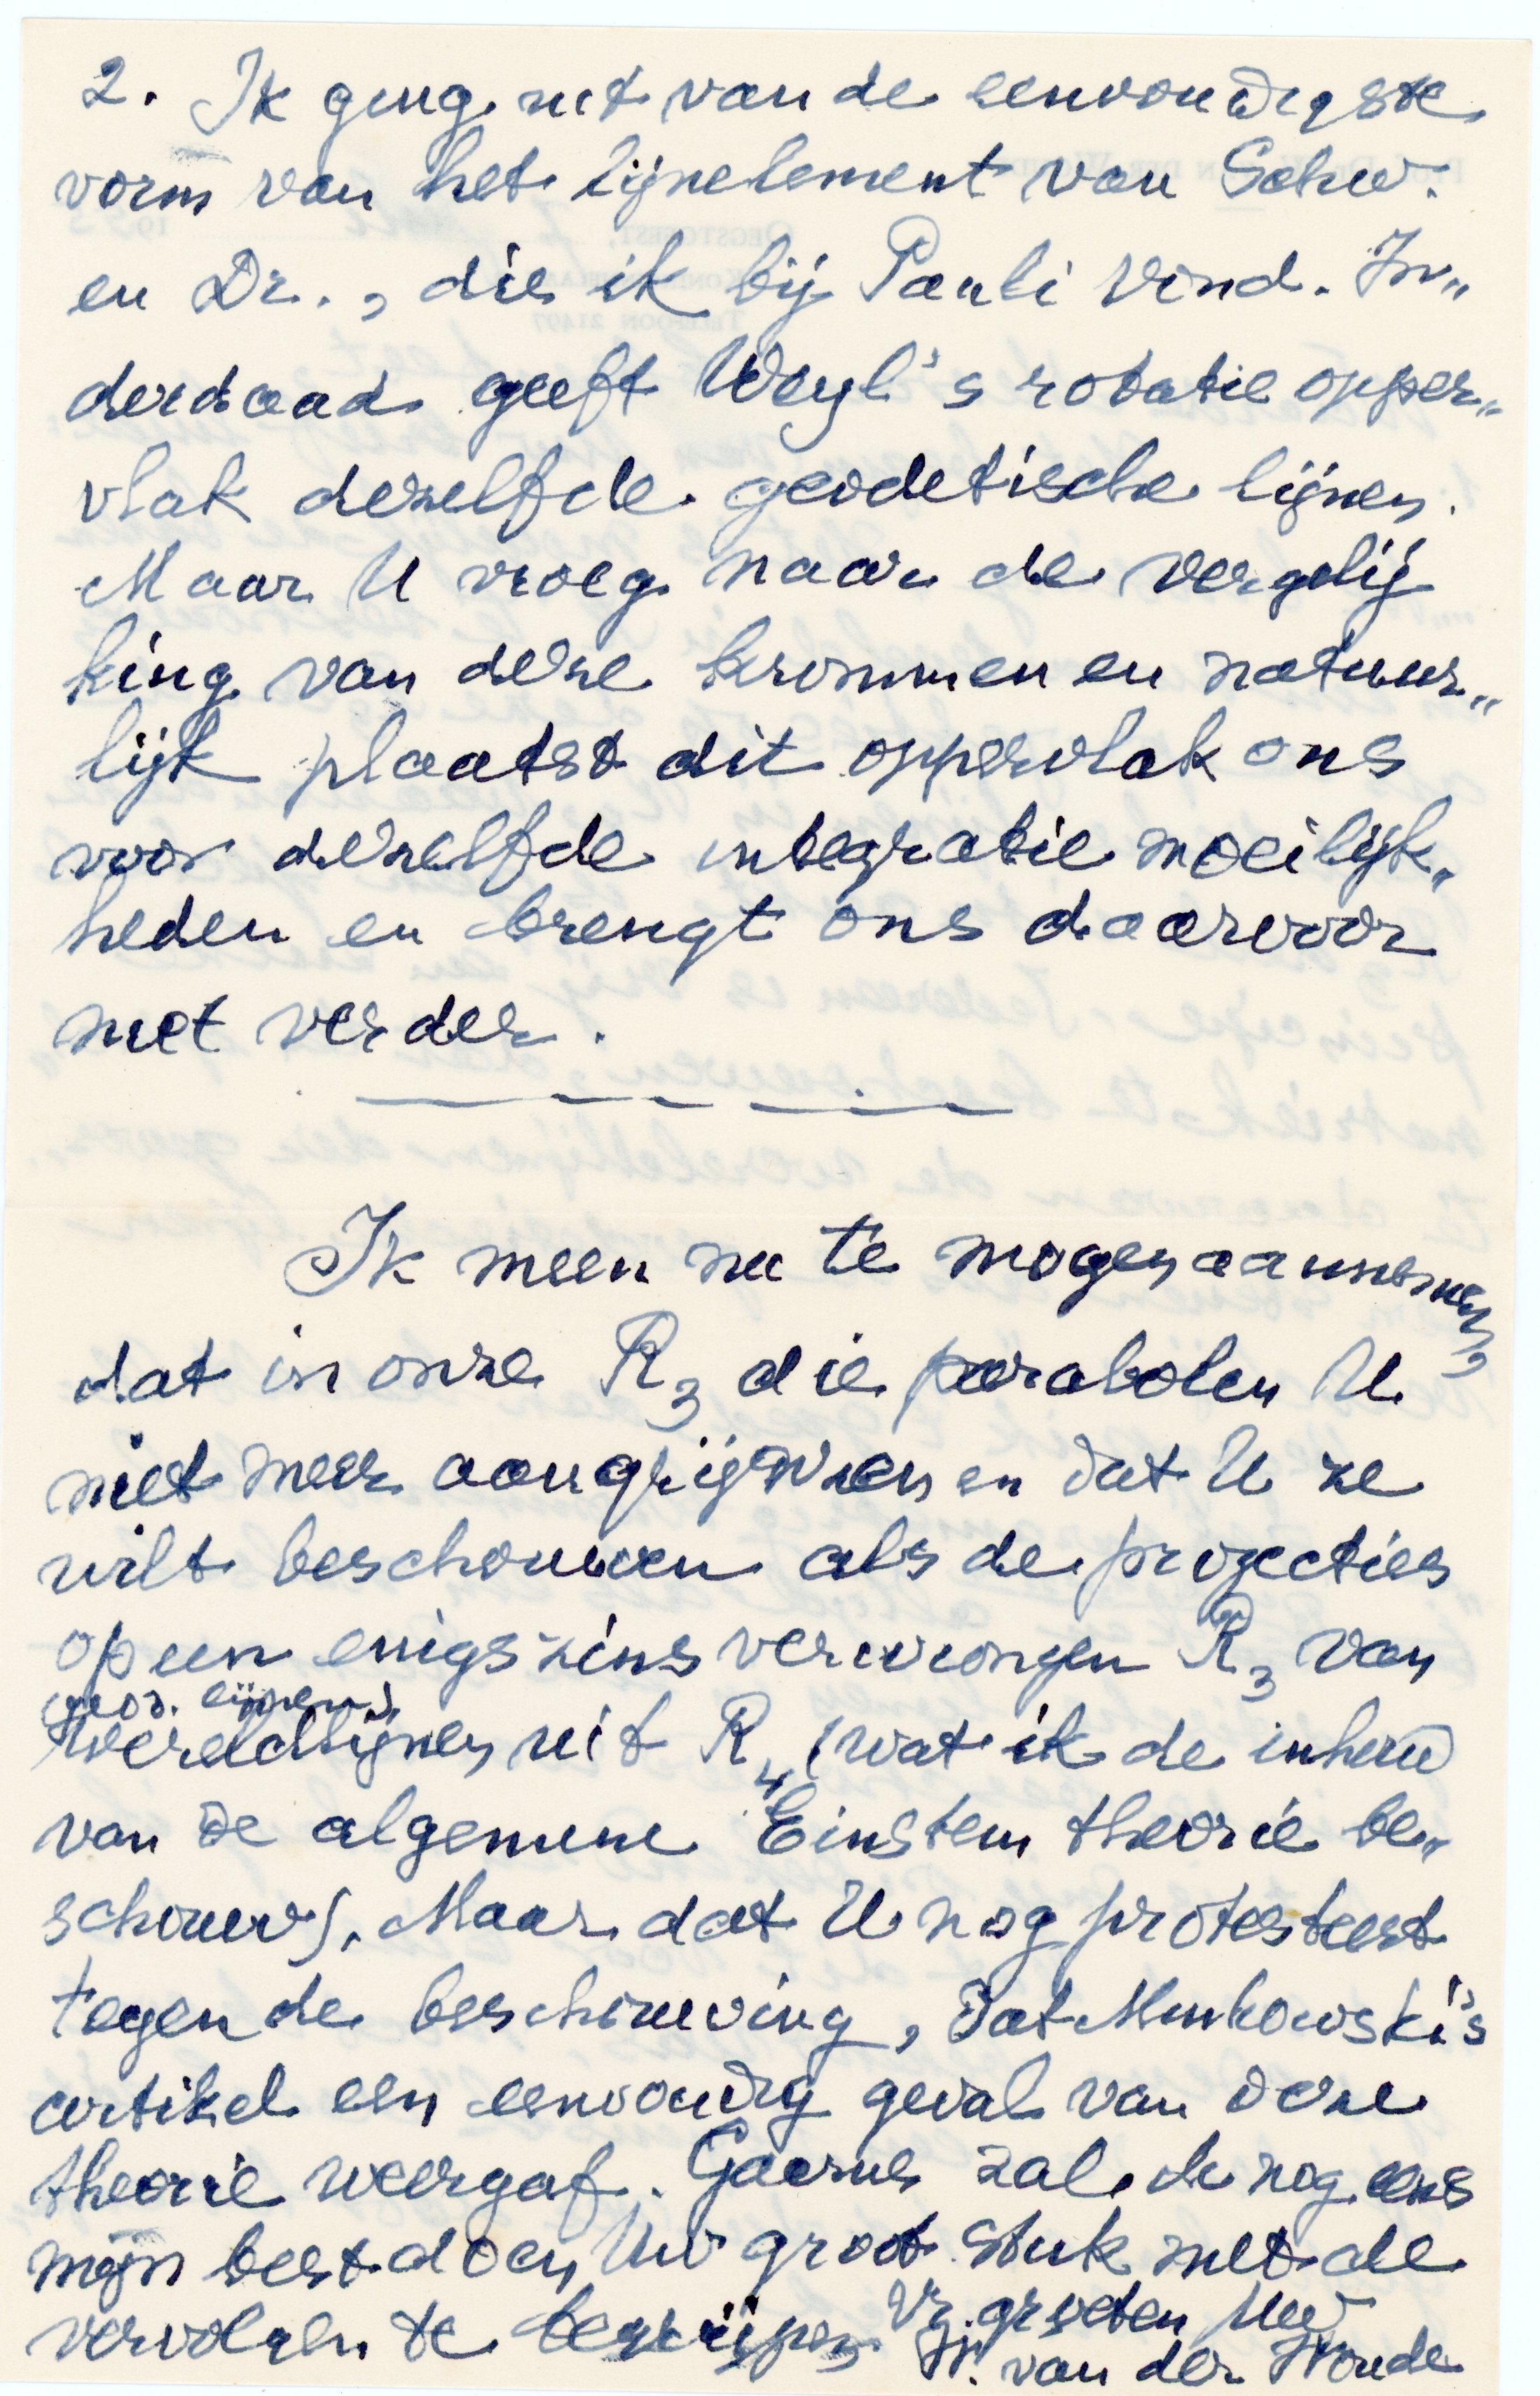 2. Ik ging uit van de eenvoudigste
vorm van het lijnelement van Schw.
en Dr., die ik bij Pauli vind. In„
derdaad geeft Weyl's rotatie opper„
vlak dezelfde geodetische lijnen.
Maar U vroeg naar de vergelij
king van deze krommen en natuur„
lijk plaatst dit oppervlak ons
voor dezelfde integratie moeilijk„
heden en brengt ons daarvoor
niet verder.
Ik meen nu te mogen aannemen,
dat in onze R3 die parabolen U
niet meer aangrijnzen en dat U ze
wilt beschouwen als de projecties
op een enigszins verwrongen R3 van
(geod. lijnen)
wereldlijnen uit R4 (wat ik de inhoud
van de algemene Einstein theorie be„
schouw). Maar dat U nog protesteert
tegen de beschouwing, dat Minkowski's
artikel een eenvoudig geval van deze
theorie weergaf. Gaarne zal ik nog eens
mijn best doen Uw groot stuk met de
vervolgen te begrijpen. Vr. groeten Uw
W. van der Woude